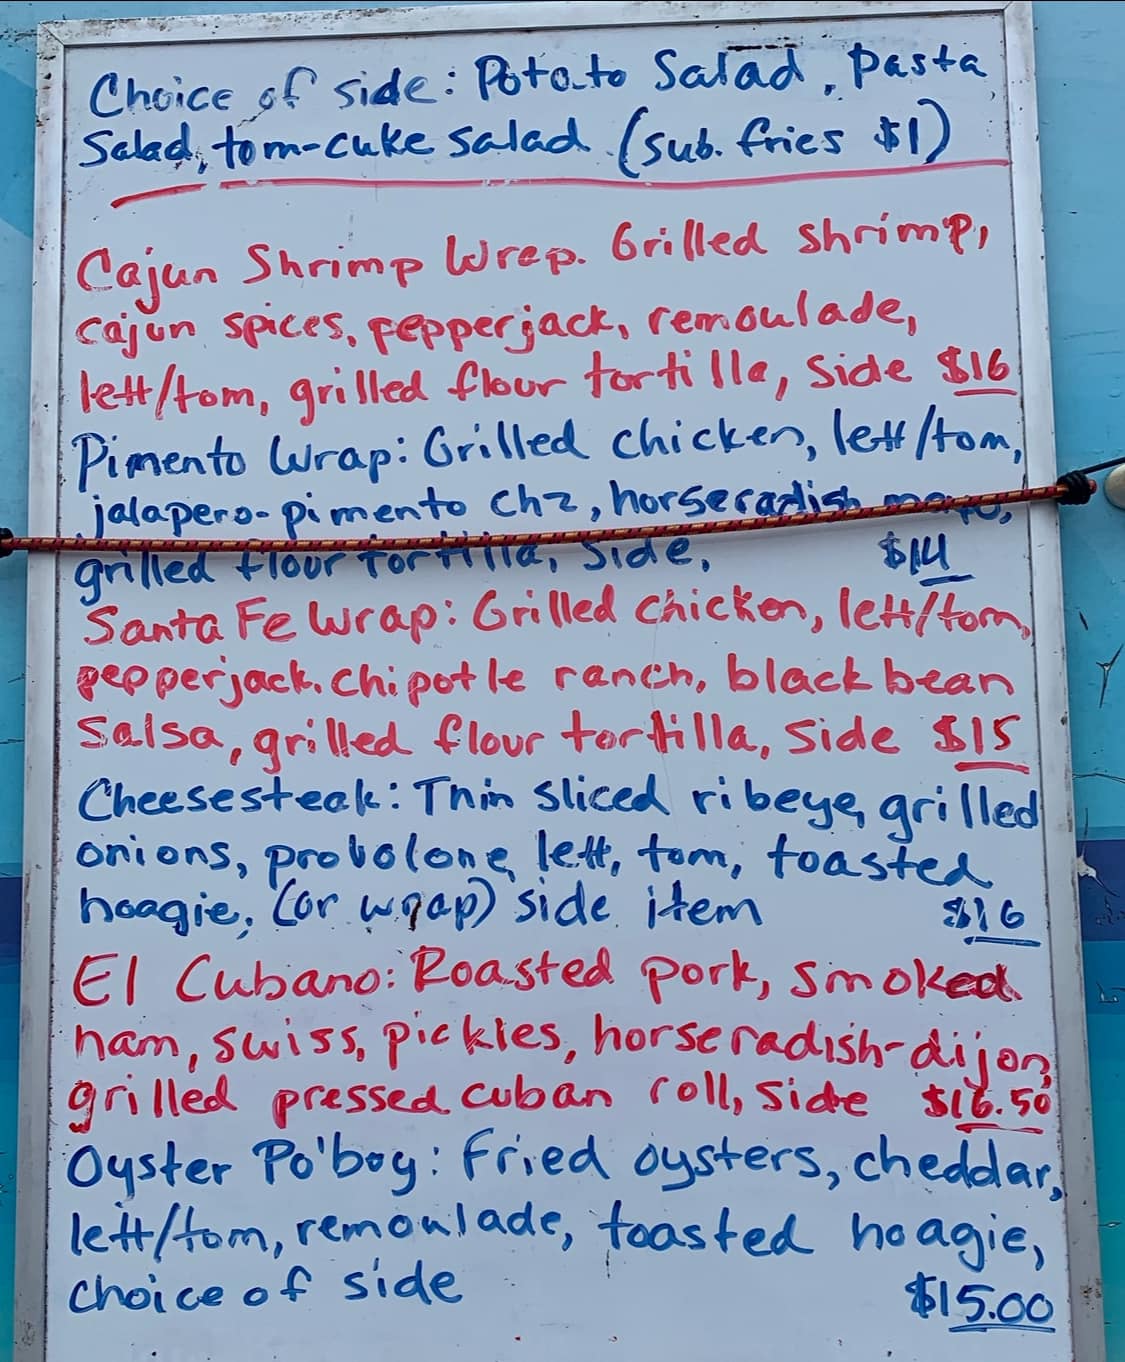 Choice of side: Potato Salad, Pasta
Salad, tom-cuke salad (sub. fries $1)
Cajun Shrimp Wrap. Grilled shrimp,
cajun spices, pepperjack, remoulade,
lett/tom, grilled flour tortilla, side $16
Pimento Wrap: Grilled chicken, lett/tom,
jalapero-pimento chz, horseradish mayo,
grilled flour tortilla, side, $14
Santa Fe Wrap: Grilled chicken, lett/tom,
pepperjack, chipotle ranch, black bean
salsa, grilled flour tortilla, side $15
Cheesesteak: Thin sliced ribeye, grilled
onions, provolone, lett, tom, toasted
hoagie, (or wrap) side item $16
El Cubano: Roasted pork, smoked
ham, swiss, pickles, horseradish-dijon,
grilled pressed cuban roll, side $16.50
Oyster Po'boy: Fried oysters, cheddar,
lett/tom, remoulade, toasted hoagie,
choice of side $15.00